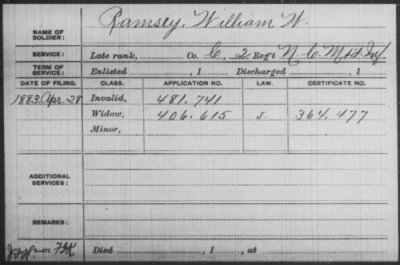 Ramsey, William W.
NAME OF SOLDIER:
SERVICE: Late rank, Co. C, 2 Reg't N.C. Mtd Inf.
TERM OF SERVICE: Enlisted , 1 Discharged , 1
DATE OF FILING. CLASS. APPLICATION NO. LAW. CERTIFICATE NO.
1883 Apr. 28 Invalid, 481.741
Widow, 406.615 J. 364.477
Minor,
ADDITIONAL SERVICES:
REMARKS:
Died , 1 , at